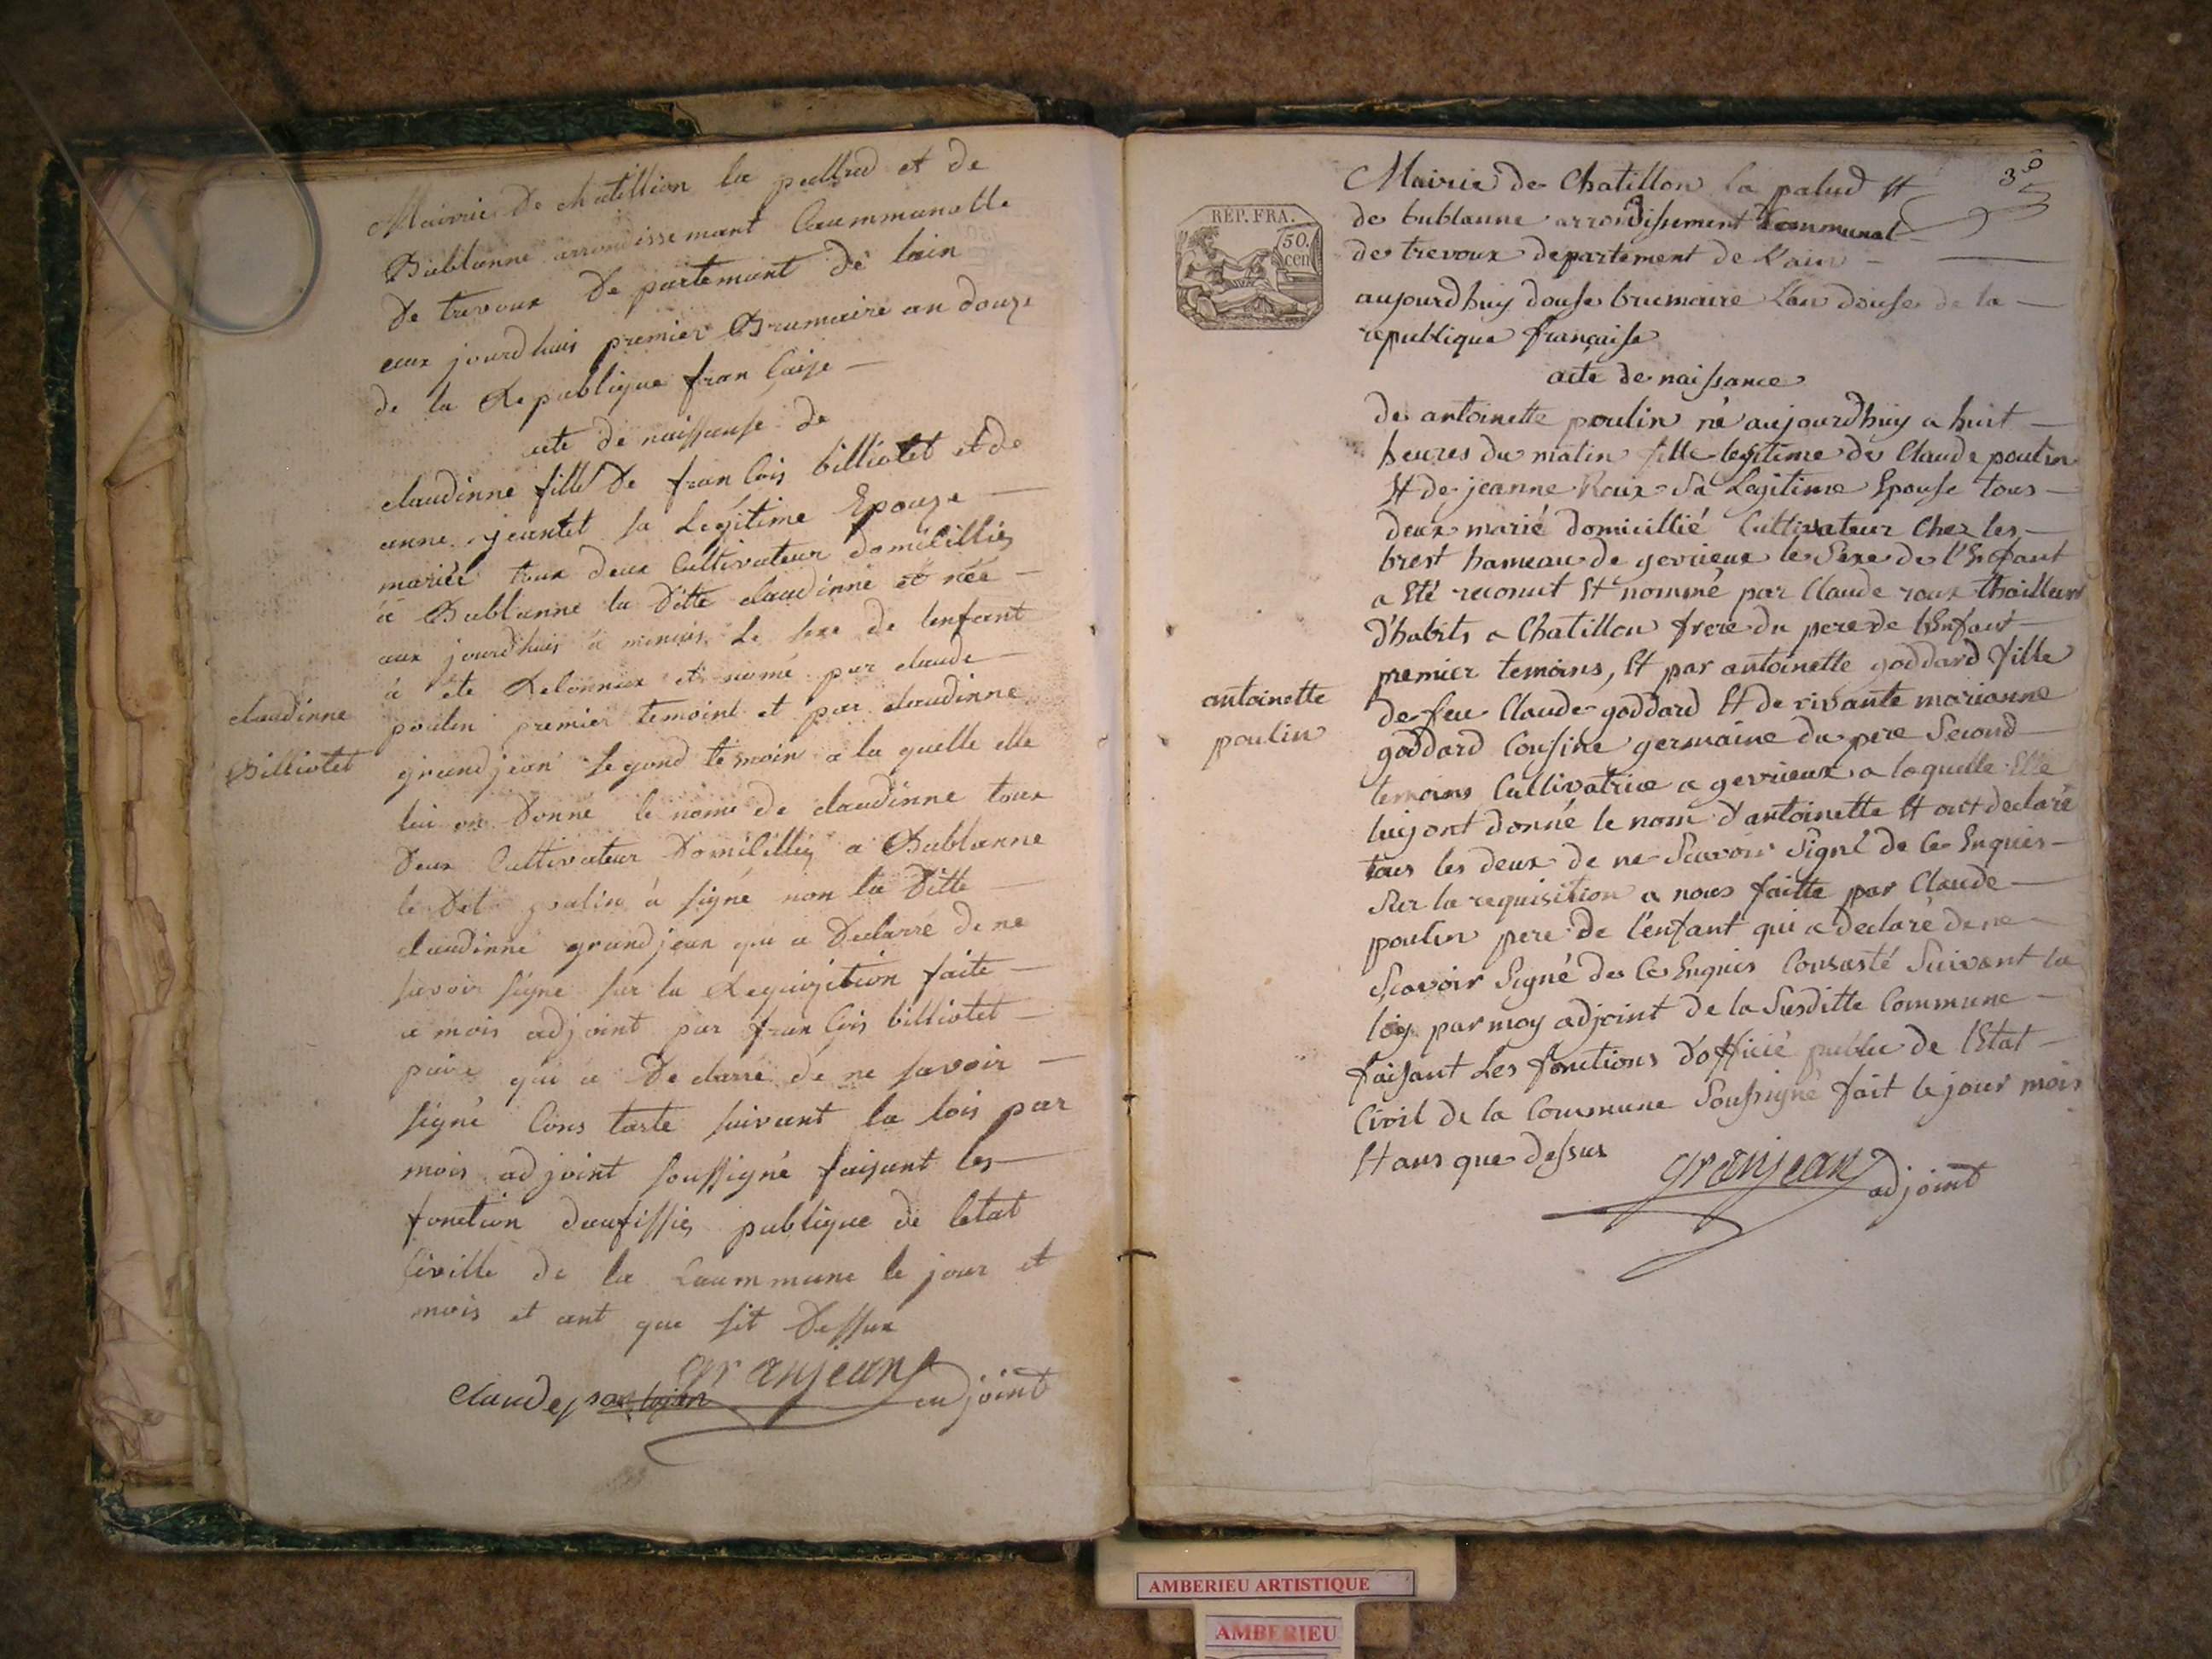 Mairie De chatillion la pallud et de
Bublanne arrondissemant Caummunalle
De trevoux De partemant de lain
aux jourdhuis premier Brumaire an douze
de la Republique fran Caise
acte de naissanse de
claudinne fille De fran Cois billiotet et de
anne jeantet sa Legitime Epouze
mariée toux deux Cultivateur domicilliés
à Bublanne la Ditte claudinne et née
aux jourdhuis à minuis Le sexe de lenfant
à ète Reconnux et nomé par claude
poulin premier temoint et par claudinne
claudinne
Billiotet
grandjean segond temoin a la quelle elle
lui on Donné le nome de claudinne toux
Deux Cultivateur Domicilliés a Bublanne
le Det poulin à signé non la Ditte
claudinne grandjean qui a Declarré de ne
savoir signe sur la Requizition faite
a mois adjoint par fran Cois billiotet
paire qui a De clarré de ne savoir
signé Cons taste suivant la lois par
mois adjoint soussigné faisant les
fonction daufissiés publique de letat
siville de la Caummune le jour et
mois et ant que sit Dessux
granjean
claude poulin adjoint
38
Mairie de Chatillon la palud Et
RÉP. FRA.
50.
cen
de bublanne arrondissement Communal
de trevoux departement de L'ain
aujourdhuy douse brumaire L'an douse de la
republique française
acte de naissance
de antoinette poulin né aujourdhuy a huit
heures du matin fille legitime de Claude poulin
Et de jeanne Roux Sa Legitime Epouse tous
deux marié domicillié Cultivateur Chez les
brest hameau de gevrieux le Sexe de l'Enfant
a Eté reconut Et nommé par Claude roux thailleur
d'habits a Chatillon frere du pere de l'Enfant
premier temoins, Et par antoinette goddard fille
antoinette
poulin
de feu Claude goddard Et de vivante marianne
goddard Cousine germaine du pere Second
temoins Cultivatrice a gevrieux a laquelle Elle
luy ont donné le nom d'antoinette Et ont declaré
tous les deux de ne Scavoir Signé de Ce Enquis
Sur la requisition a nous faitte par Claude
poulin pere de l'enfant qui a declaré de ne
Scavoir Signé de Ce Enquis Consasté Suivant la
loy par moy adjoint de la Susditte Commune
faisant Les fonctions d'officié public de l'Etat
Civil de la Commune Soussigné fait le jour mois
Et ans que dessus
granjean
adjoint
AMBERIEU ARTISTIQUE
AMBERIEU